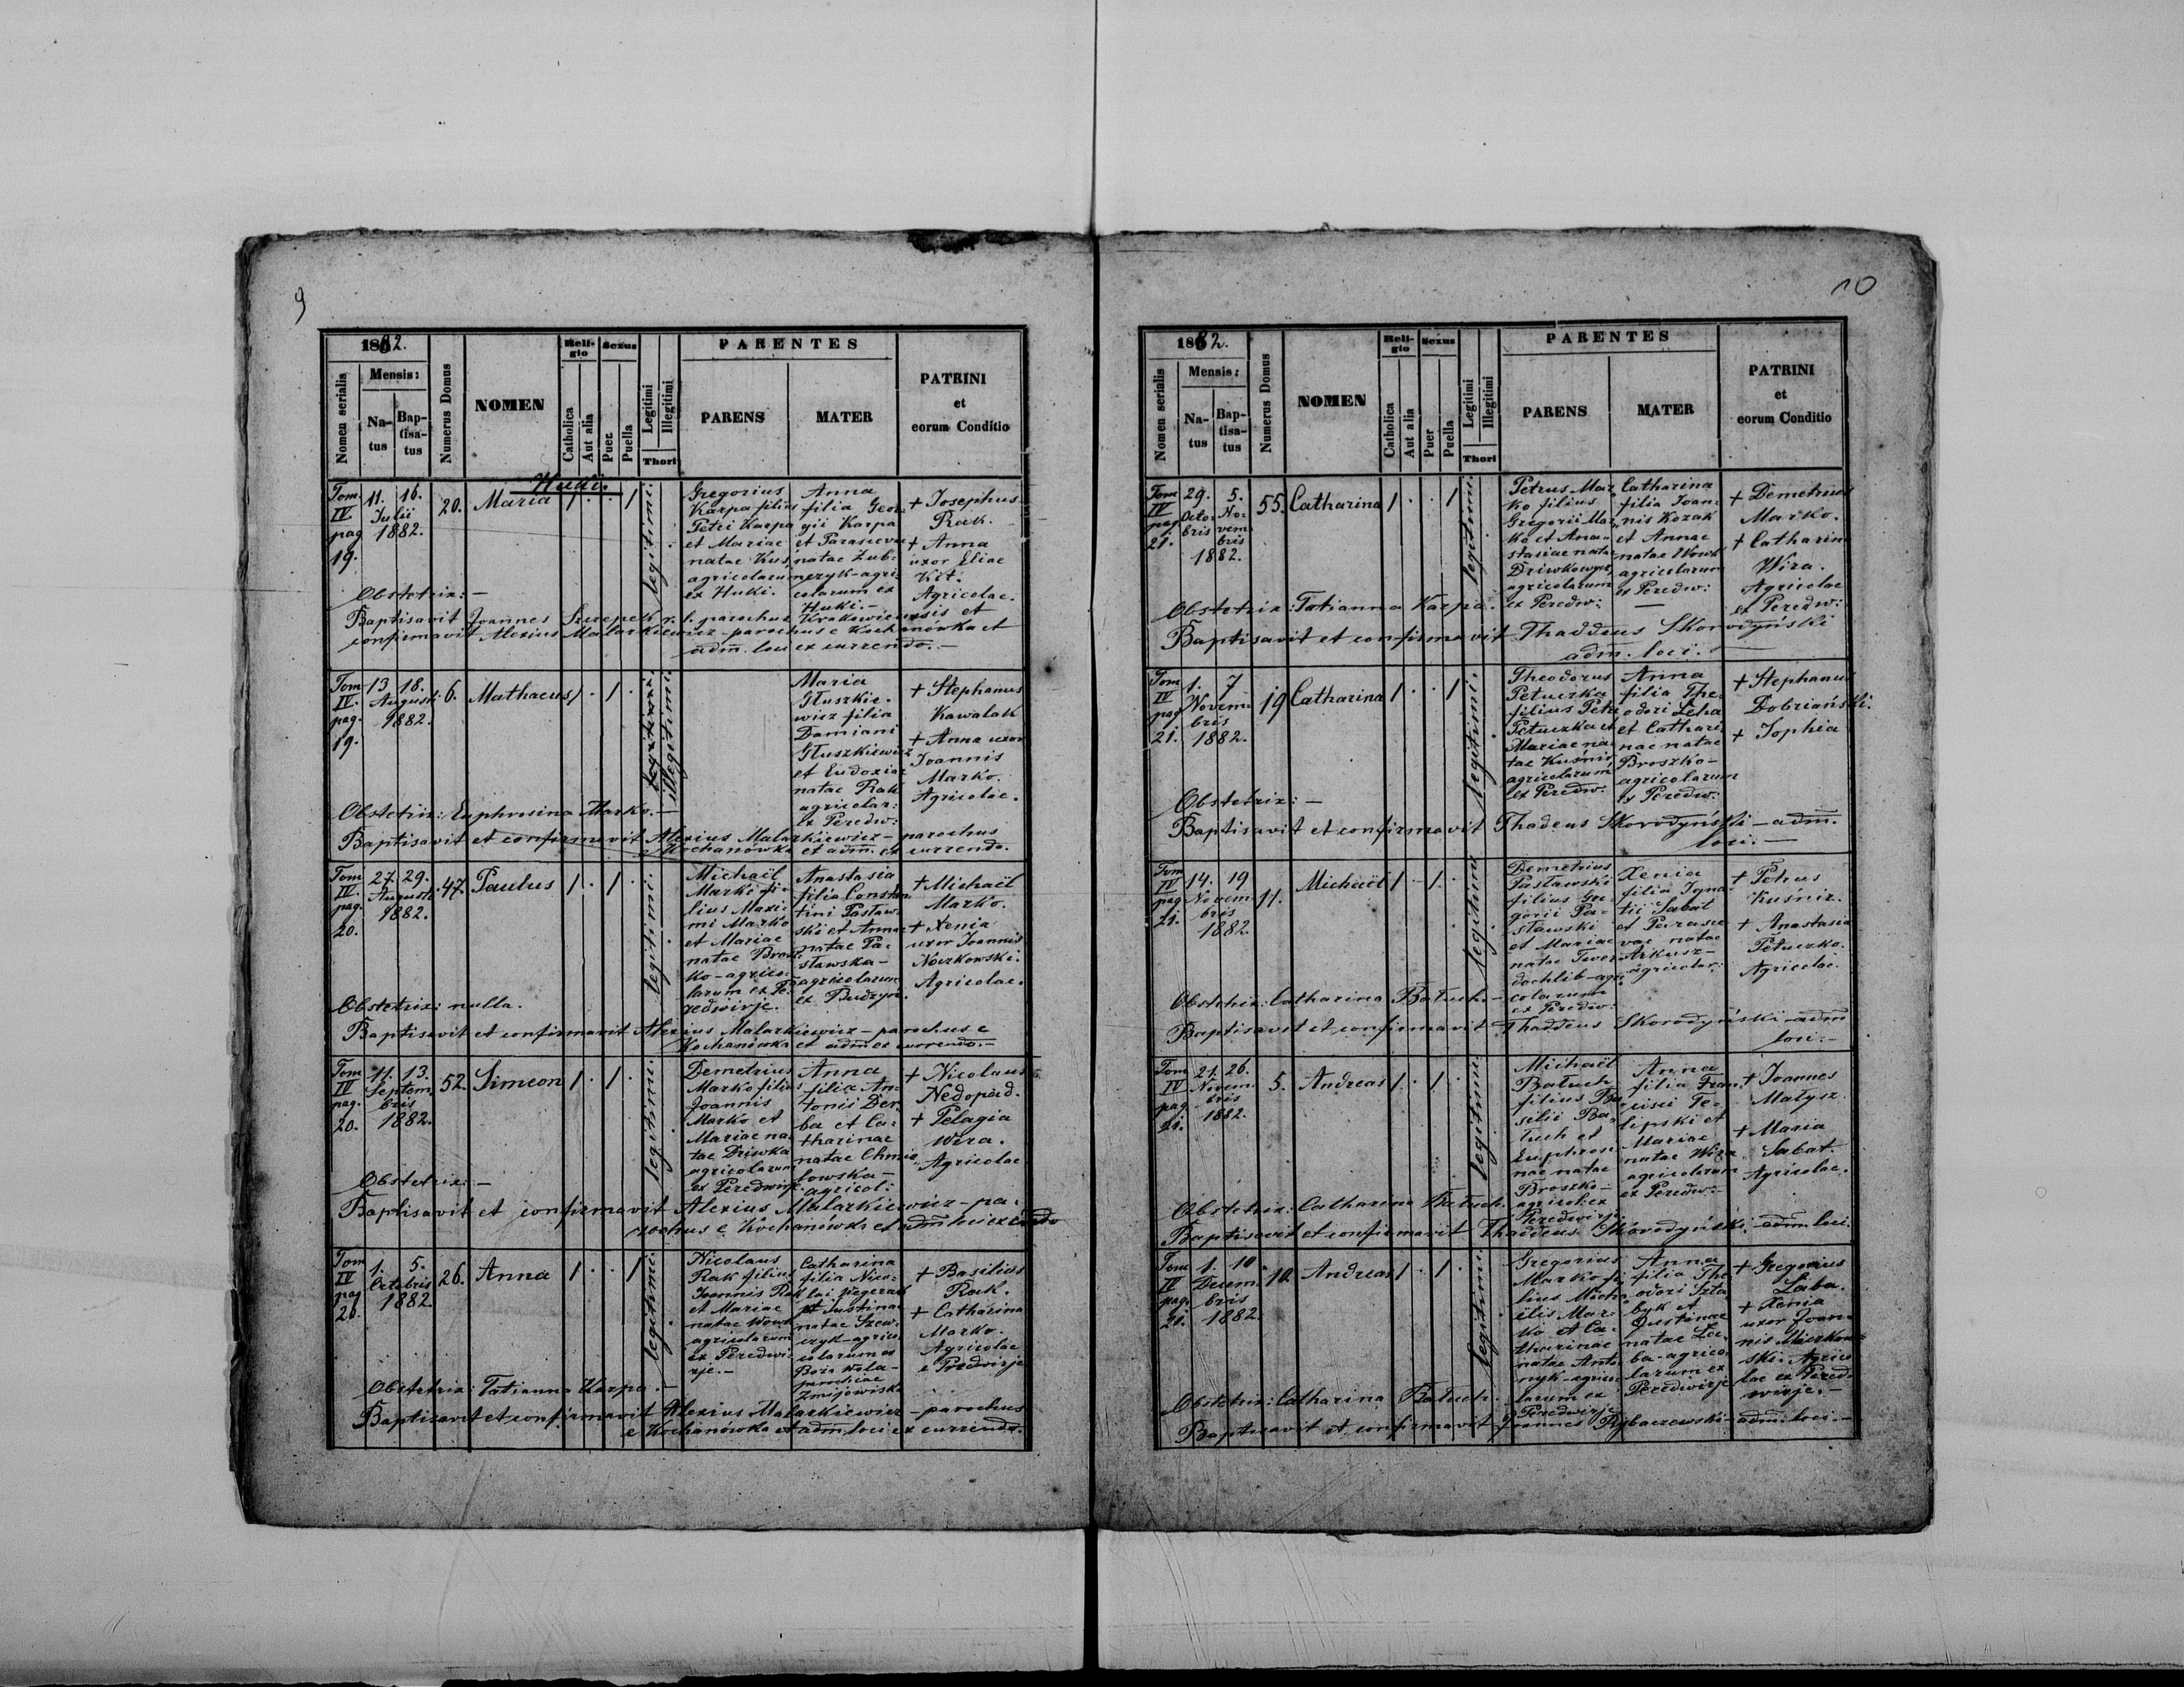 9
1882.
Religio
Sexus
PARENTES
Nomen serialis
Mensis:
Natus
Baptisatus
Numerus Domus
NOMEN
Catholica
Aut alia
Puer
Puella
Legitimi
Illegitimi
Thori
PARENS
MATER
PATRINI
et
eorum Conditio
Huki.
Tom
IV
pag
19.
11. 16.
Julii
1882.
20.
Maria
1 . . 1
legitimi.
Gregorius
Karpa filius
Petri Karpa
et Mariae
natae Kus,
agricolarum
ex Huki.
Anna
filia Geor-
gii Karpa
et Parascevae
natae Zub-
czyk-agri-
colarum ex
Huki.-
+ Josephus
Rak.
+ Anna
uxor Eliae
Kit.
Agricolae.
Obstetrix: -
Baptisavit Joannes Szczepek r. l. parochus Krakowiecensis et
confirmavit Alexius Malarkiewicz - parochus e Kochanówka et
adm. loci ex currendo.-
Tom
IV.
pag.
19.
13. 18.
Augusti
1882.
6.
Mathaeus
1 . 1 .
illegitimi
Maria
Głuszkie-
wicz filia
Damiani
Głuszkiewicz
et Eudoxiae
natae Rak
agricolar:
ex Peredw:
+ Stephanus
Kawalak
+ Anna uxor
Joannis
Marko.
Agricolae.
Obstetrix: Euphrosina Marko.-
Baptisavit et confirmavit Alexius Malarkiewicz - parochus
e Kochanówka et adm. ex currendo.
Tom
IV.
pag.
20.
27. 29.
Augusti
1882.
47.
Paulus
1 . 1 .
legitimi.
Michaël
Marko fi-
lius Maxi-
mi Marko
et Mariae
natae Brosz-
ko-agrico-
larum ex Pe-
redwirje.
Anastasia
filia Constan-
tini Pasław-
ski et Annae
natae Pa-
sławska-
agricolarum
ex Budzyń.
+ Michaël
Marko.
+ Xenia
uxor Joannis
Noczkowski.
Agricolae.
Obstetrix: nulla.
Baptisavit et confirmavit Alexius Malarkiewicz - parochus e
Kochanówka et adm ex currendo.-
Tom
IV
pag.
20.
11. 13.
Septem
bris
1882.
52.
Simeon
1 . 1 .
legitimi.
Demetrius
Marko filius
Joannis
Marko et
Mariae na-
tae Driwka
agricolarum
ex Peredwirje.
Anna
filia An-
tonii Der-
ba et Ca-
tharinae
natae Chmie-
lowska-
agricol:
+ Nicolaus
Nedopad.
+ Pelagia
Wira.
Agricolae
Obstetrix: -
Baptisavit et confirmavit Alexius Malarkiewicz - pa-
rochus e Kochanówka et adm loci ex crrdo
Tom
IV
pag
20.
1. 5.
Octobris
1882.
26.
Anna
1 . . 1
legitimi.
Nicolaus
Rak filius
Joannis Rak
et Mariae
natae Wowk
agricolarum
ex Peredwi-
rje.-
Catharina
filia Nico-
lai
et Justinae
natae Szew-
czyk-agrico-
colarum ex
Boża Wola-
parochiae
Zmijowiska
+ Basilius
Rak.
+ Catharina
Marko.
Agricolae
e Peredwirje
Obstetrix: Tatianna Karpa.-
Baptisavit et confirmavit Alexius Malarkiewicz - parochus
e Kochanówka et adm. loci ex currendo.
10
1882.
Religio
Sexus
PARENTES
Nomen serialis
Mensis:
Natus
Baptisatus
Numerus Domus
NOMEN
Catholica
Aut alia
Puer
Puella
Legitimi
Illegitimi
Thori
PARENS
MATER
PATRINI
et
eorum Conditio
Tom
IV
pag
21.
29. 5.
Octo- No-
bris vem
bris
1882.
55.
Catharina
1 . . 1
legitimi.
Petrus Mar-
ko filius
Gregorii Mar-
ko et Ana-
stasiae natae
Driwkowycz,
agricolarum
ex Peredw:
Catharina
filia Joan-
nis Kozak
et Annae
natae Wowk
agricolarum
ex Peredw:
+ Demetrius
Marko.
+ Catharina
Wira.
Agricolae
ex Peredw:
Obstetrix: Tatianna Karpa.
Baptisavit et confirmavit Thaddeus Skorodyński
adm. loci.
Tom
IV
pag
21.
1. 7
Novem-
bris
1882.
19
Catharina
1 . . 1
legitimi.
Theodorus
Petuczka
filius Petri
Petuczka et
Mariae na-
tae Kuśnir
agricolarum
ex Peredw:
Anna
filia The-
odori Leha
et Cathari-
nae natae
Broszko-
agricolarum
ex Peredw:
+ Stephanus
Dobriański.
+ Sophia
Obstetrix: -
Baptisavit et confirmavit Thadeus Skorodyński - adm.
loci.-
Tom
IV
pag
21.
14. 19
Novem-
bris
1882.
11.
Michaël
1 . 1 .
legitimi
Demetrius
Pasławski
filius Gre-
gorii Pa-
sławski
et Mariae
natae Twer-
dochlib-agri-
colarum
ex Peredw:
Xenia
filia Igna-
tii Sabat
et Parasce-
vae natae
Arkusz-
agricolar:
+ Petrus
Kuśnir.
+ Anastasia
Petuczko.
Agricolae.
Obstetrix: Catharina Batuch.-
Baptisavit et confirmavit Thaddeus Skorodyński adm
loci.-
Tom
IV
pag.
21.
21. 26.
Novem-
bris
1882.
5.
Andreas
1 . 1 .
legitimi.
Michaël
Batuch
filius Ba-
silii Ba-
tuch et
Euphrosi-
nae natae
Broszko-
agricol: ex
Peredwirje.
Anna
filia Fran-
cisci Te-
lipski et
Mariae
natae Wira
agricolarum
ex Peredw.-
+ Joannes
Małysz
+ Maria
Sabat.
Agricolae.
Obstetrix: Catharina Batuch.
Baptisavit et confirmavit Thaddeus Skorodyński. adm loci.
Tom
IV
pag.
21.
1. 10.
Decem-
bris
1882.
10.
Andreas
1 . 1 .
legitimi.
Gregorius
Marko fi-
lius Micha-
ëlis Mar-
ko et Ca-
tharinae
natae Anto-
nyk-agrico-
larum ex
Peredwirje
Anna
filia The-
odori Szta-
byk et
Justinae
natae Ła-
ba-agrico-
larum ex
Peredwirje
+ Gregorius
Łaba.
+ Xenia
uxor Joan-
nis Miczkow-
ski. Agrico-
lae ex Pered-
wirje.-
Obstetrix: Catharina Batuch.
Baptisavit et confirmavit Joannes Rybaczewski - adm. loci.-